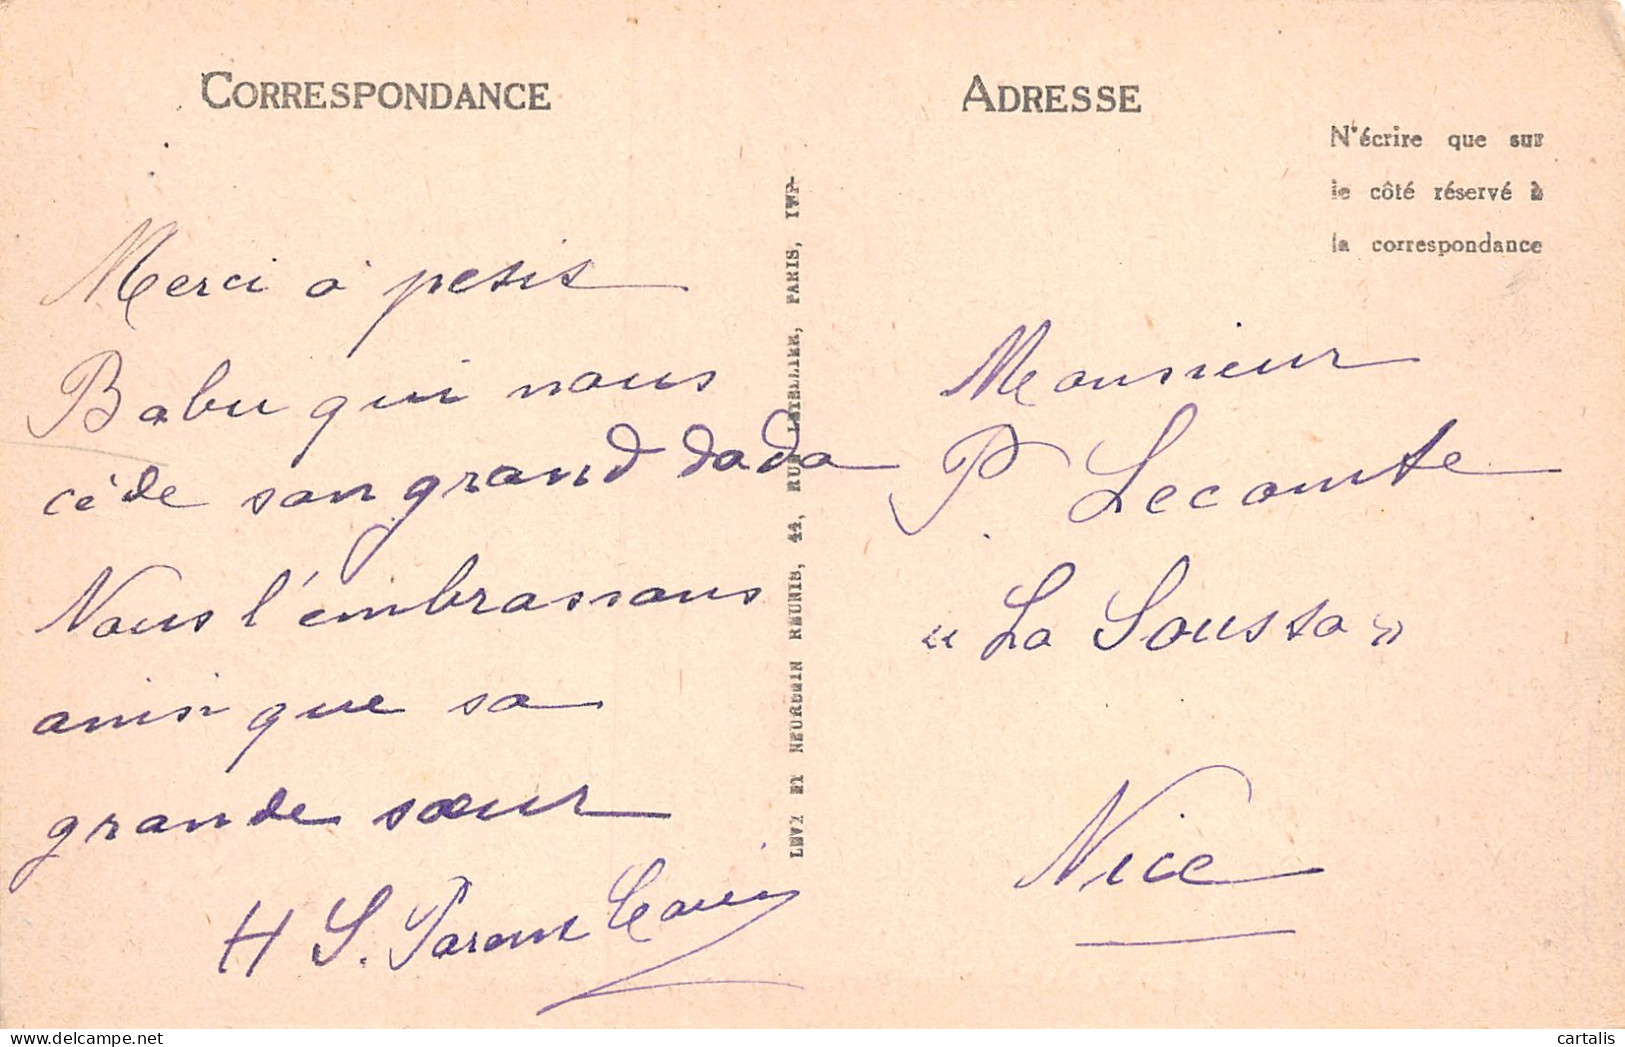 CORRESPONDANCE
Merci à petit
Babu qui nous
cède son grand dada
Nous l'embrassons
ainsi que sa
grande sœur
H S.
LEVY ET NEURDEIN REUNIS, 44, RUE LETELLIER, PARIS, IMP.
ADRESSE
N'écrire que sur
le côté réservé à
la correspondance
Monsieur
P. Lecomte
« La Soussa »
Nice
cartalis